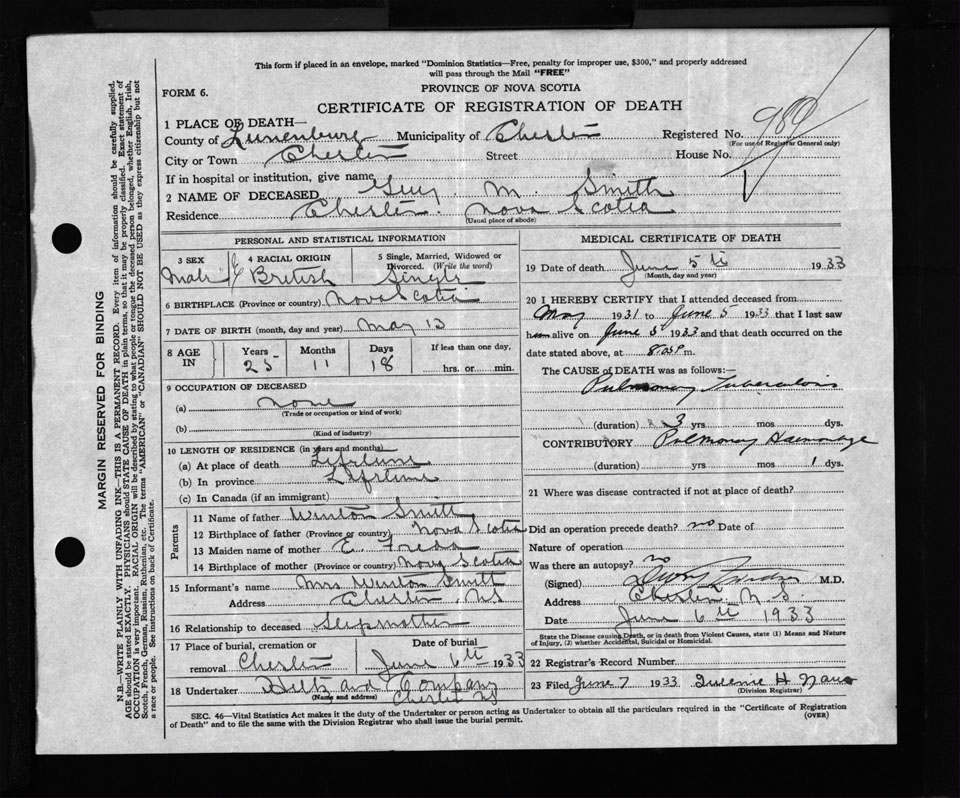 This form if placed in an envelope, marked "Dominion Statistics—Free, penalty for improper use, $300," and properly addressed
will pass through the Mail "FREE"
FORM 6.
PROVINCE OF NOVA SCOTIA
CERTIFICATE OF REGISTRATION OF DEATH
1 PLACE OF DEATH—
County of Lunenburg Municipality of Chester Registered No. 989
(For use of Registrar General only)
City or Town Chester Street House No.
If in hospital or institution, give name
2 NAME OF DECEASED Guy M. Smith
Residence Chester. Nova Scotia
(Usual place of abode)
PERSONAL AND STATISTICAL INFORMATION
3 SEX 4 RACIAL ORIGIN 5 Single, Married, Widowed or
Divorced. (Write the word)
Male British Single
6 BIRTHPLACE (Province or country) Nova Scotia
7 DATE OF BIRTH (month, day and year) May 13
8 AGE IN Years Months Days If less than one day,
25 11 18 hrs. or min.
9 OCCUPATION OF DECEASED
(a) none
(Trade or occupation or kind of work)
(b)
(Kind of industry)
10 LENGTH OF RESIDENCE (in years and months)
(a) At place of death Lifetime
(b) In province Lifetime
(c) In Canada (if an immigrant)
Parents
11 Name of father Winton Smith
12 Birthplace of father (Province or country) Nova Scotia
13 Maiden name of mother E. Freda
14 Birthplace of mother (Province or country) Nova Scotia
15 Informant's name Mrs Winton Smith
Address Chester, NS
16 Relationship to deceased Stepmother
17 Place of burial, cremation or Date of burial
removal Chester June 6th 1933
18 Undertaker Hiltz and Company
(Name and address) Chester NS
MEDICAL CERTIFICATE OF DEATH
19 Date of death June 5th 1933
(Month, day and year)
20 I HEREBY CERTIFY that I attended deceased from
May 1931 to June 5 1933 that I last saw
him alive on June 5 1933 and that death occurred on
date stated above, at m.
The CAUSE of DEATH was as follows:—
Pulmonary Tuberculosis
(duration) 3 yrs mos dys.
CONTRIBUTORY Pulmonary Haemorrage
(duration) yrs mos 1 dys.
21 Where was disease contracted if not at place of death?
Did an operation precede death? no Date of
Nature of operation
Was there an autopsy? no
(Signed) M.D.
Address Chester N S.
Date June 6th 1933
State the Disease causing Death, or in death from Violent Causes, state (1) Means and Nature
of Injury, (2) whether Accidental, Suicidal or Homicidal.
22 Registrar's Record Number
23 Filed June 7 1933 H
(Division Registrar)
SEC. 46—Vital Statistics Act makes it the duty of the Undertaker or person acting as Undertaker to obtain all the particulars required in the "Certificate of Registration
of Death" and to file the same with the Division Registrar who shall issue the burial permit.
(OVER)
MARGIN RESERVED FOR BINDING
N.B.—WRITE PLAINLY WITH UNFADING INK—THIS IS A PERMANENT RECORD. Every item of information should be carefully supplied.
AGE should be stated EXACTLY. PHYSICIANS should STATE CAUSE OF DEATH in plain terms, so that it may be properly classified. Exact statement of
OCCUPATION is very important. RACIAL ORIGIN will be described by stating to what people or tongue the deceased person belonged, whether English, Irish,
Scotch, French, German, Russian, Ruthenian, etc. The terms "AMERICAN" or "CANADIAN" SHOULD NOT BE USED as they express citizenship but not
a race or people. See instructions on back of Certificate.